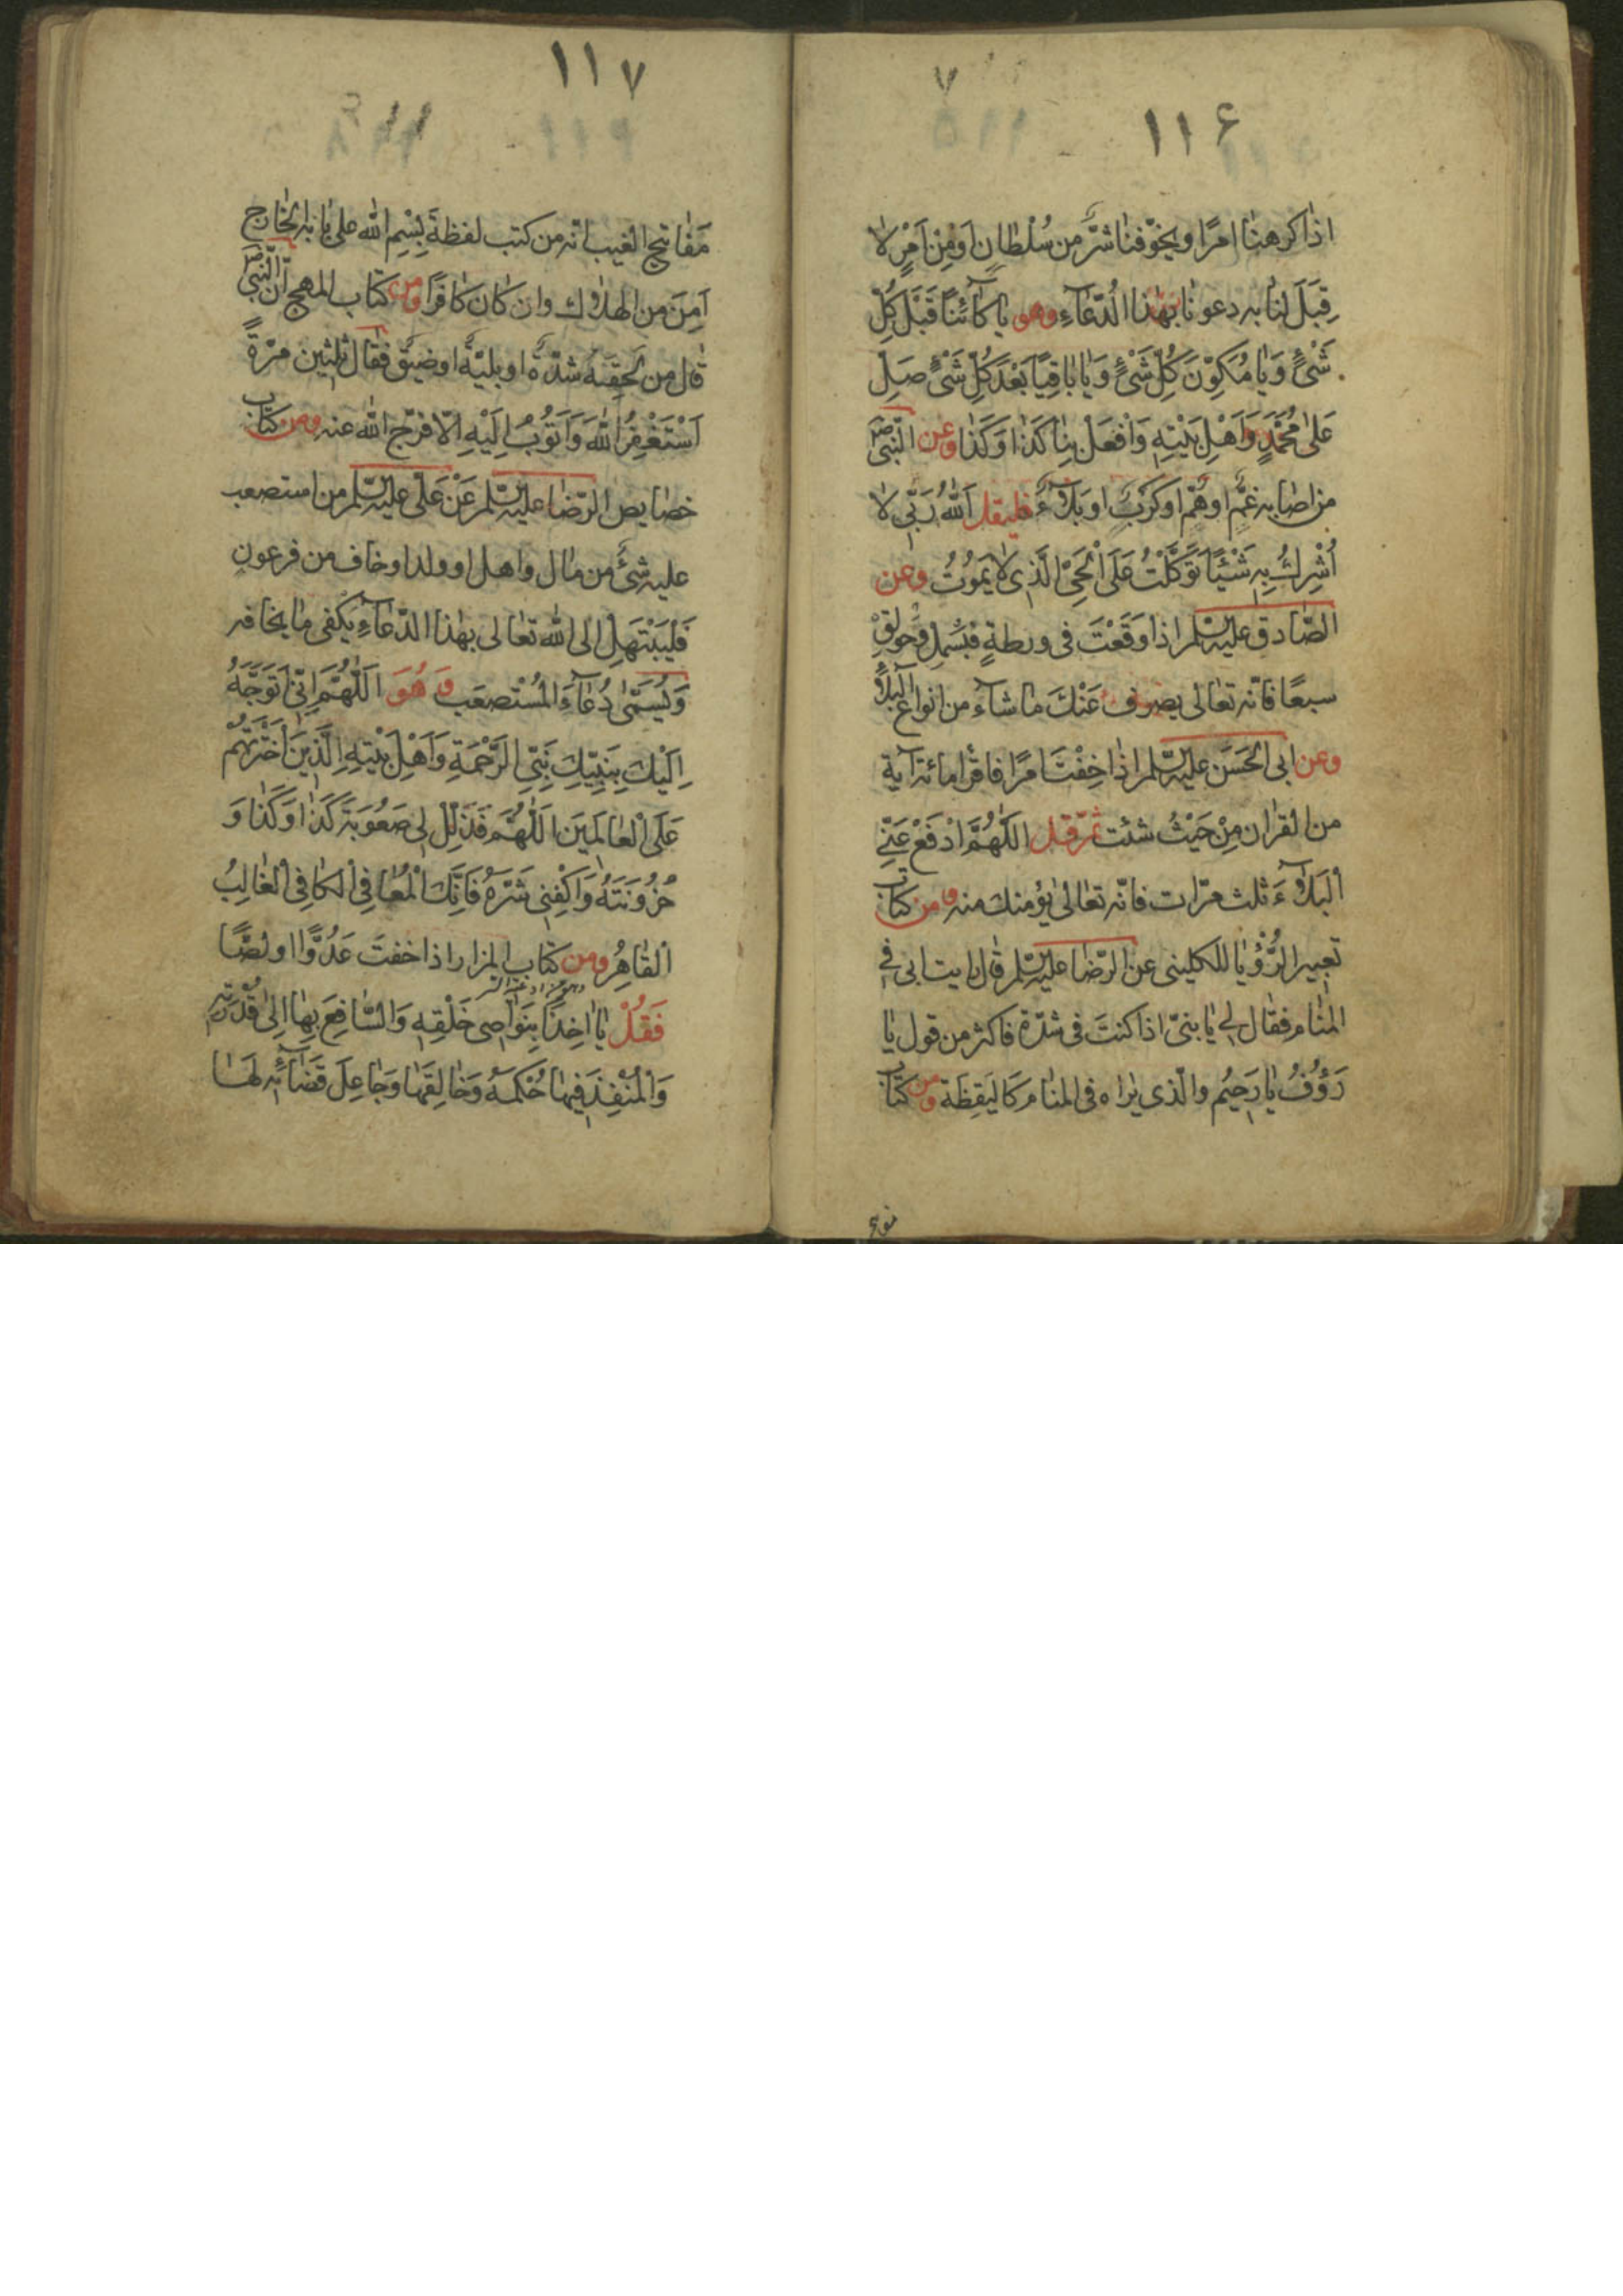 ١١۶
اذا كرهنا امرًا ويخوّفنا شرَّ من سُلْطانٍ اَوْ مِنْ اَمْرٍ لا
قِبَلَ لنا به دعونا بهٰذا الدّعآءِ وهو يا كآئنًا قَبْلَ كُلِّ
شَىْءٍ وَيا مُكَوِّنَ كُلِّ شَىْءٍ وَيا باقِيًا بَعْدَ كُلِّ شَىْءٍ صَلِّ
عَلىٰ مُحَمَّدٍ وَاَهْلِ بَيْتِهِ وَافْعَلْ بِنا كَذا وَكَذا وعن النّبىّ ص
من اصابه غمٌّ او همٌّ او كَرْبٌ او بَلآءٌ فليقل اَللّٰهُ رَبّى لا
اُشْرِكُ بِهِ شَيْئًا تَوَكَّلْتُ عَلَى الْحَىِّ الَّذى لا يَمُوتُ وعن
الصّادق عليه السّلم اذا وَقَعْتَ فى ورطةٍ فبَسْمِل وحَولِق
سبعًا فانّه تعالى يصرف عَنْكَ ما شآء من انواع البلآء
وعن ابى الحَسَن عليه السّلم اذا خِفْتَ امرًا فاقرا مائة آية
من القران مِنْ حَيْثُ شئت ثمّ قل اللّٰهُمَّ ادْفَعْ عَنّى
الْبَلآءَ ثلث مرّات فانّه تعالىٰ يؤمنك منه ومن كتاب
تعبير الرُّؤْيا للكلينى عن الرّضا عليه السّلم قال رايت ابى فى
المنام فقال لى يا بنىّ اذا كنتَ فى شدّة فاكثر من قول يا
رَؤُفُ يا رَحيمُ والّذى يراه فى المنام كاليَقِظَة ومن كتاب
١١٧
مَفاتيح الغيب انّه من كتب لفظة بِسْمِ اللّٰه علىٰ بابه الخارج
اَمِنَ من الهلاك وان كان كافرًا ومن كتاب المهج انّ النّبىّ ص
قال من لحِقته شدّةٌ او بليّةٌ او ضيقٌ فقال ثلثين مرّةً
اَسْتَغْفِرُ اللّٰهَ وَاَتُوبُ اِلَيْهِ الّا فرّج اللّٰه عنه ومن كتاب
خصايص الرّضا عليه السّلم عَنْ عَلىّ عليه السّلم من استصعب
عليه شَىْءٌ من مال واهل او ولد او خاف من فرعون
فَليَبْتَهِل الى اللّٰه تعالى بهٰذا الدّعآءِ يكفى ما يخافه
وَيُسَمّىٰ دُعآءَ المُسْتصعَب وَهُوَ اَللّٰهُمَّ اِنّى اَتَوَجَّهُ
اِلَيْكَ بِنَبِيِّكَ نَبِىِّ الرَّحْمَةِ وَاَهْلِ بَيْتِهِ الَّذينَ اخْتَرْتَهُمْ
عَلَى الْعالَمينَ اَللّٰهُمَّ فَذَلِّلْ لى صُعُوبَةَ كَذا وَكَذا وَ
حُزُونَتَهُ وَاكْفِنى شَرَّهُ فَاِنَّكَ الْمُعافِى الكافِى الْغالِبُ
الْقاهِرُ ومن كتاب المزار اذا خفتَ عَدُوًّا او لصًّا
فَقُلْ يا اخِذًا بِنَواصى خَلْقِهِ وَالسّافِعَ بِها اِلىٰ قُدْرَتِهِ
وَالْمُنْفِذَ فيها حُكْمَهُ وَخالِقَها وَجاعِلَ قَضآئِهِ لَها